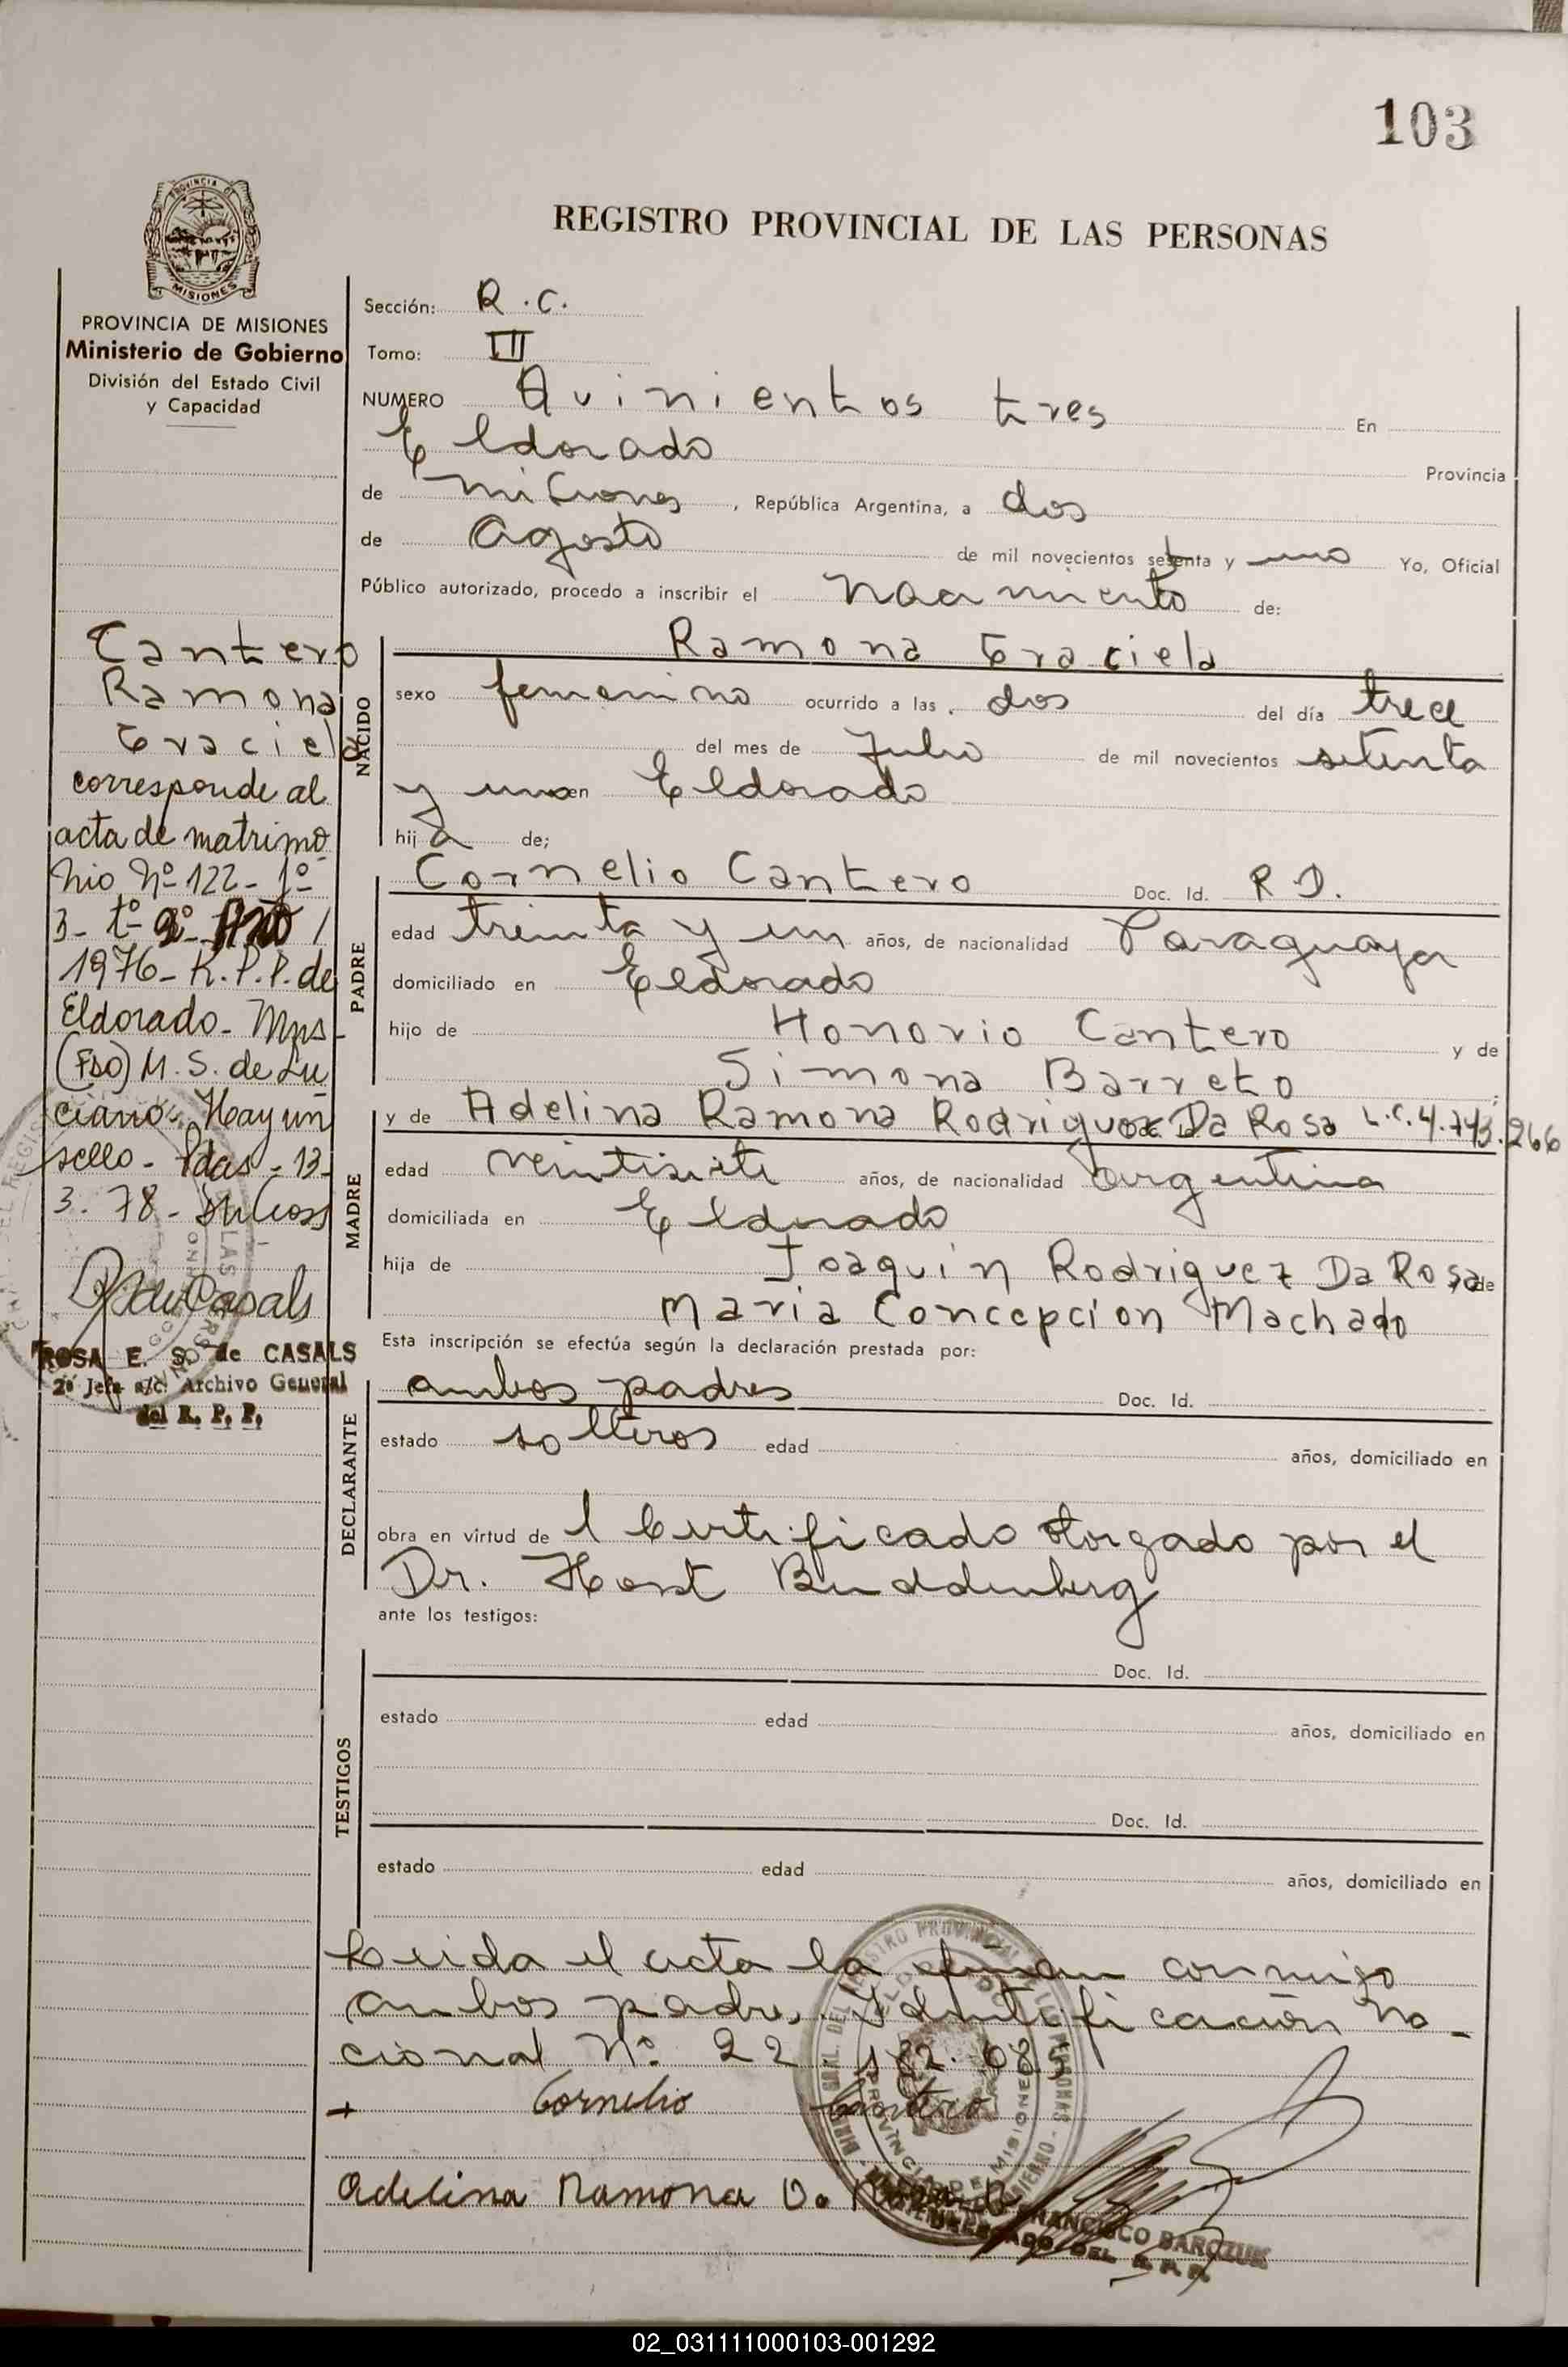 103
PROVINCIA DE
MISIONES
REGISTRO PROVINCIAL DE LAS PERSONAS
PROVINCIA DE MISIONES
Ministerio de Gobierno
División del Estado Civil
y Capacidad
Sección: R.C.
Tomo: III
NUMERO Quinientos tres En
Eldorado Provincia
de Misiones, República Argentina, a dos
de Agosto de mil novecientos setenta y uno Yo, Oficial
Público autorizado, procedo a inscribir el nacimiento de:
Cantero
Ramona
Graciela
corresponde al
acta de matrimo
nio Nº 122 - fº
3 - tº 2º - Año
1976 - R.P.P. de
Eldorado - Mns -
(Fdo) M. S. de Lu
ciano - Hay un
sello - Pdas - 13 -
3. 78 -
ROSA E. S. de CASALS
2º Jefe a/c. Archivo General
del R. P. P.
NACIDO
Ramona Graciela
sexo femenino ocurrido a las dos del día trece
del mes de Julio de mil novecientos setenta
y uno en Eldorado
hija de;
PADRE
Cornelio Cantero Doc. Id. R D.
edad treinta y un años, de nacionalidad Paraguaya
domiciliado en Eldorado
hijo de Honorio Cantero y de
Simona Barreto ;
MADRE
y de Adelina Ramona Rodriguez Da Rosa L.C. 4.743.266
edad veintisiete años, de nacionalidad argentina
domiciliada en Eldorado
hija de Joaquin Rodriguez Da Rosa y de
Maria Concepcion Machado
Esta inscripción se efectúa según la declaración prestada por:
DECLARANTE
ambos padres Doc. Id.
estado solteros edad años, domiciliado en
obra en virtud del Certificado otorgado por el
Dr. Horst Buddenberg
ante los testigos:
TESTIGOS
Doc. Id.
estado edad años, domiciliado en
Doc. Id.
estado edad años, domiciliado en
Leida el acta la firman conmigo
ambos padres. Identificación Na-
cional Nº 22 182.685
Cornelio Cantero
Adelina Ramona Da Rosa
FRANCISCO BAROZUK
DELEGADO DEL R. P. P.
02_031111000103-001292